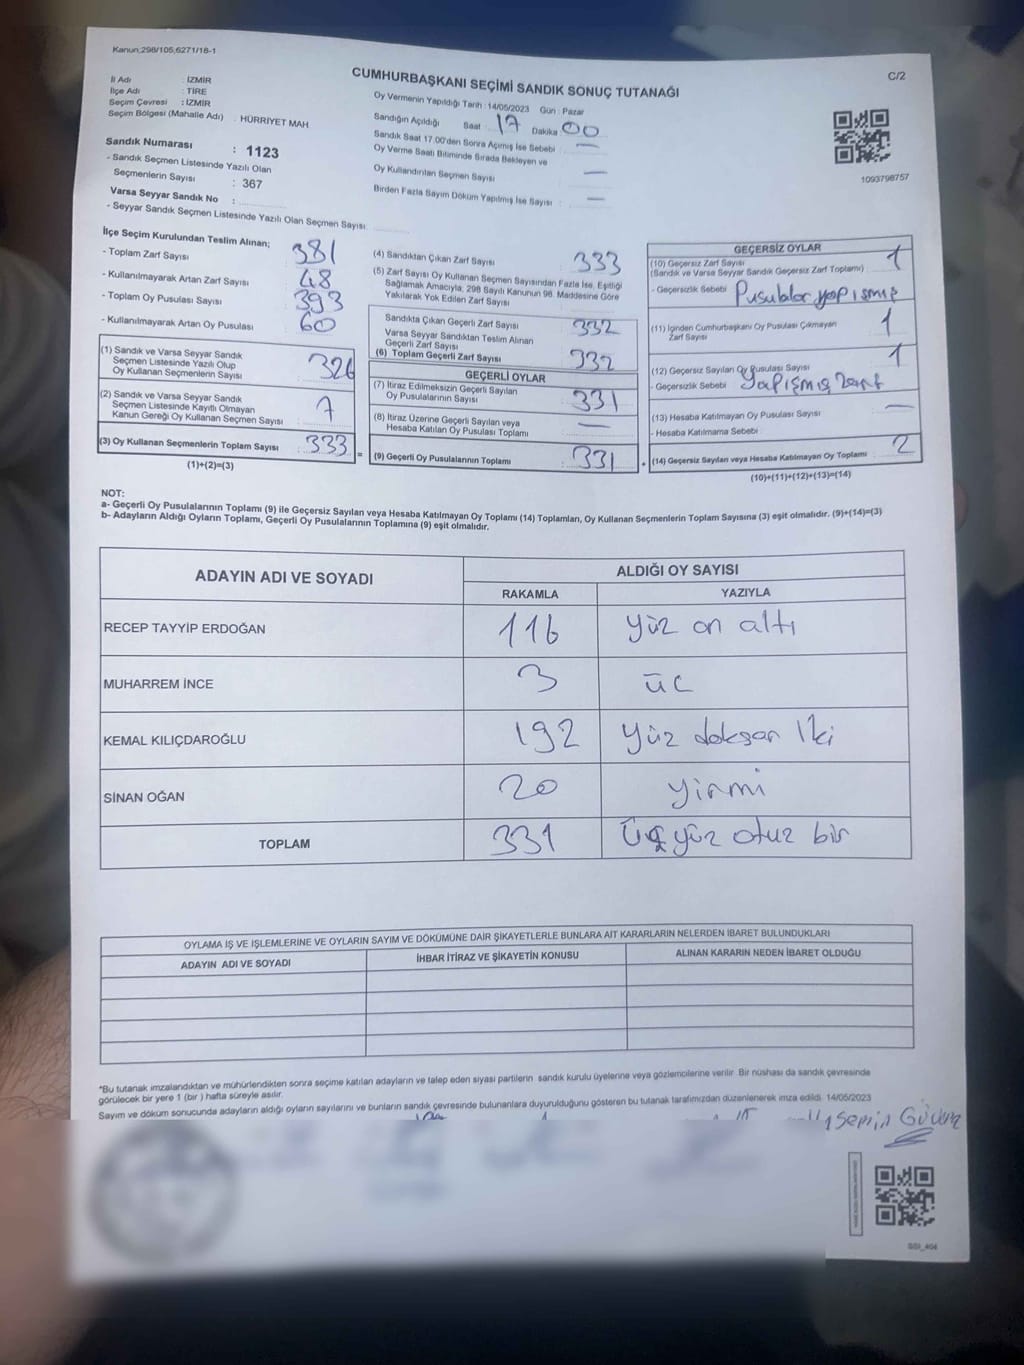 Kanun;298/105,6271/16-1
C/2
CUMHURBAŞKANI SEÇİMİ SANDIK SONUÇ TUTANAĞI
İl Adı : İZMİR
İlçe Adı : TİRE
Seçim Çevresi : İZMİR
Seçim Bölgesi (Mahalle Adı) : HÜRRİYET MAH.
Sandık Numarası : 1123
- Sandık Seçmen Listesinde Yazılı Olan
Seçmenlerin Sayısı : 367
Varsa Seyyar Sandık No :
- Seyyar Sandık Seçmen Listesinde Yazılı Olan Seçmen Sayısı:
Oy Vermenin Yapıldığı Tarih : 14/05/2023 Gün : Pazar
Sandığın Açıldığı Saat : 17 Dakika 00
Sandık Saat 17.00'den Sonra Açımış İse Sebebi : —
Oy Verme Saati Bitiminde Sırada Bekleyen ve
Oy Kullandırılan Seçmen Sayısı : —
Birden Fazla Sayım Döküm Yapılmış İse Sayısı : —
1093798757
İlçe Seçim Kurulundan Teslim Alınan;
- Toplam Zarf Sayısı 381
- Kullanılmayarak Artan Zarf Sayısı 48
- Toplam Oy Pusulası Sayısı 393
- Kullanılmayarak Artan Oy Pusulası 60
(1) Sandık ve Varsa Seyyar Sandık
Seçmen Listesinde Yazılı Olup
Oy Kullanan Seçmenlerin Sayısı 326
(2) Sandık ve Varsa Seyyar Sandık
Seçmen Listesinde Kayıtlı Olmayan
Kanun Gereği Oy Kullanan Seçmen Sayısı 7
(3) Oy Kullanan Seçmenlerin Toplam Sayısı 333 =
(1)+(2)=(3)
(4) Sandıktan Çıkan Zarf Sayısı 333
(5) Zarf Sayısı Oy Kullanan Seçmen Sayısından Fazla İse, Eşitliği
Sağlamak Amacıyla; 298 Sayılı Kanunun 98. Maddesine Göre
Yakılarak Yok Edilen Zarf Sayısı
Sandıkta Çıkan Geçerli Zarf Sayısı 332
Varsa Seyyar Sandıktan Teslim Alınan
Geçerli Zarf Sayısı
(6) Toplam Geçerli Zarf Sayısı 332
GEÇERLİ OYLAR
(7) İtiraz Edilmeksizin Geçerli Sayılan
Oy Pusulalarının Sayısı 331
(8) İtiraz Üzerine Geçerli Sayılan veya
Hesaba Katılan Oy Pusulası Toplamı —
(9) Geçerli Oy Pusulalarının Toplamı 331 +
GEÇERSİZ OYLAR
(10) Geçersiz Zarf Sayısı 1
(Sandık ve Varsa Seyyar Sandık Geçersiz Zarf Toplamı)
- Geçersizlik Sebebi : Pusulalar yapışmış
(11) İçinden Cumhurbaşkanı Oy Pusulası Çıkmayan 1
Zarf Sayısı
(12) Geçersiz Sayılan Oy Pusulası Sayısı 1
- Geçersizlik Sebebi : Yapışmış zarf
(13) Hesaba Katılmayan Oy Pusulası Sayısı —
- Hesaba Katılmama Sebebi :
(14) Geçersiz Sayılan veya Hesaba Katılmayan Oy Toplamı 2
(10)+(11)+(12)+(13)=(14)
NOT:
a- Geçerli Oy Pusulalarının Toplamı (9) ile Geçersiz Sayılan veya Hesaba Katılmayan Oy Toplamı (14) Toplamları, Oy Kullanan Seçmenlerin Toplam Sayısına (3) eşit olmalıdır. (9)+(14)=(3)
b- Adayların Aldığı Oyların Toplamı, Geçerli Oy Pusulalarının Toplamına (9) eşit olmalıdır.
ADAYIN ADI VE SOYADI ALDIĞI OY SAYISI
RAKAMLA YAZIYLA
RECEP TAYYİP ERDOĞAN 116 yüz on altı
MUHARREM İNCE 3 üç
KEMAL KILIÇDAROĞLU 192 yüz doksan iki
SİNAN OĞAN 20 yirmi
TOPLAM 331 üçyüz otuz bir
OYLAMA İŞ VE İŞLEMLERİNE VE OYLARIN SAYIM VE DÖKÜMÜNE DAİR ŞİKAYETLERLE BUNLARA AİT KARARLARIN NELERDEN İBARET BULUNDUKLARI
ADAYIN ADI VE SOYADI İHBAR İTİRAZ VE ŞİKAYETİN KONUSU ALINAN KARARIN NEDEN İBARET OLDUĞU
*Bu tutanak imzalandıktan ve mühürlendikten sonra seçime katılan adayların ve talep eden siyasi partilerin sandık kurulu üyelerine veya gözlemcilerine verilir. Bir nüshası da sandık çevresinde
görülecek bir yere 1 (bir) hafta süreyle asılır.
Sayım ve döküm sonucunda adayların aldığı oyların sayılarını ve bunların sandık çevresinde bulunanlara duyurulduğunu gösteren bu tutanak tarafımızdan düzenlenerek imza edildi. 14/05/2023